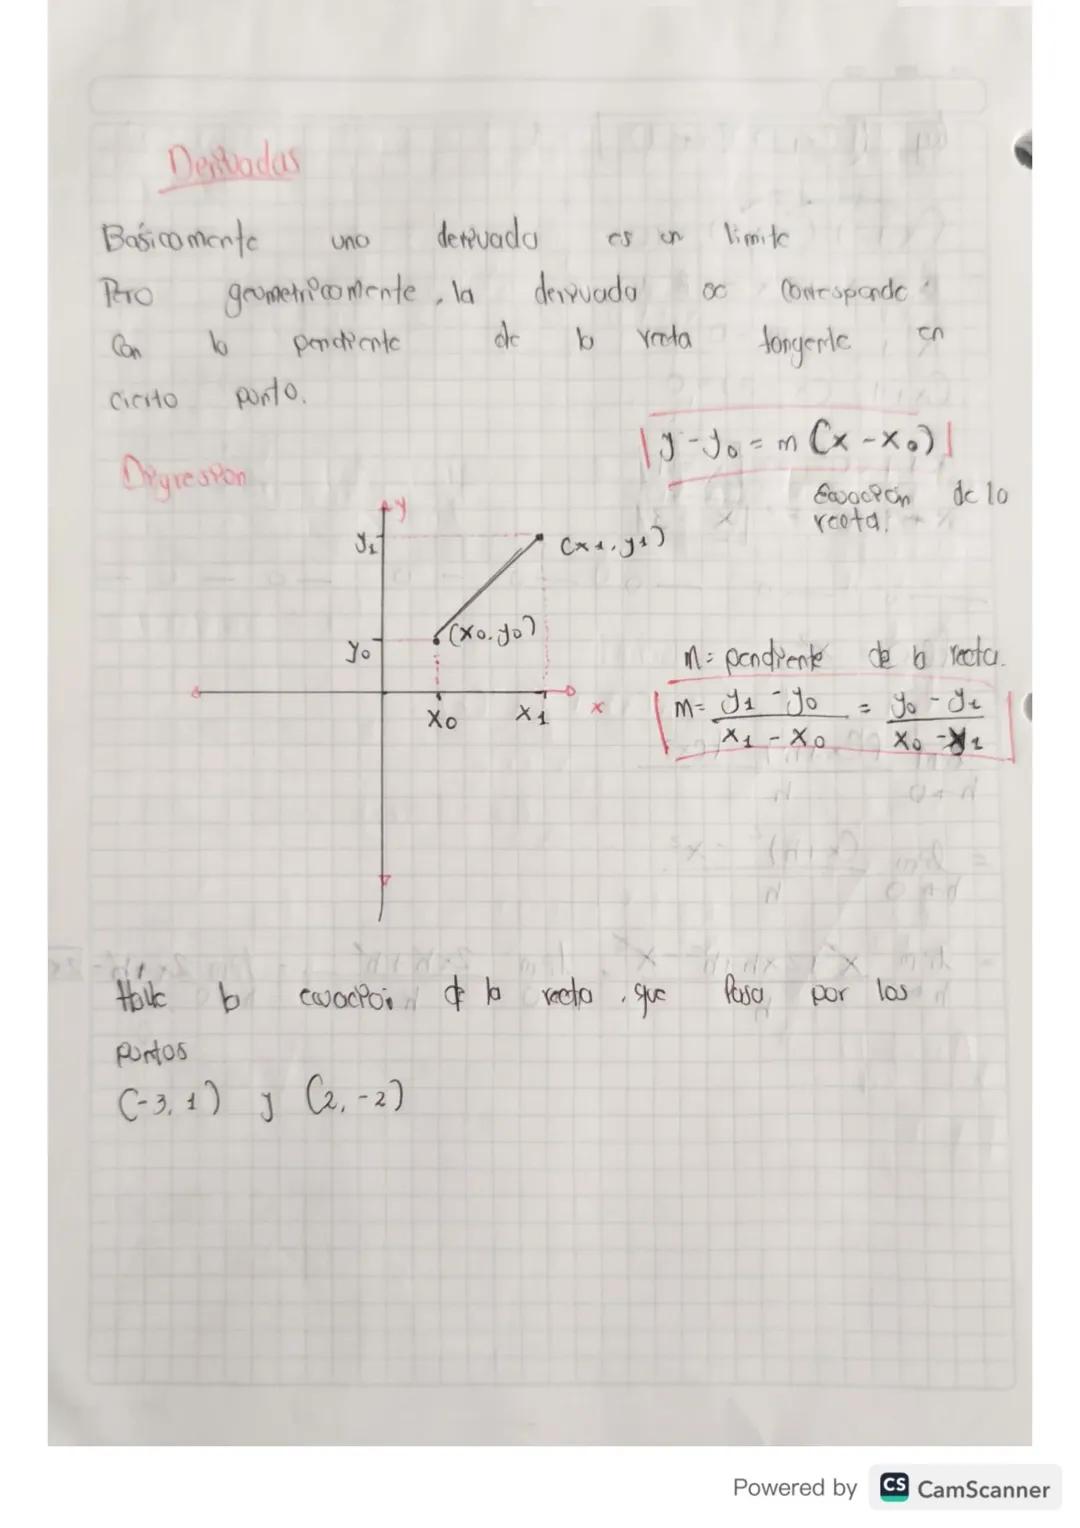 Derivadas
Básicamente una derivada es un limite
Pero geometricamente, la derivada corresponde
Con la pendiente de la recta tangente en
cierto punto.
y - y0 = m (x - x0)
Digresion
Ecuación de la
recta.
y
y1
(x1, y1)
(x0, y0)
y0
m = pendiente de la recta.
m = y1 - y0 / x1 - x0 = y0 - y1 / x0 - x1
x0 x1 x
Halle la ecuación de la recta, que pasa por los
puntos
(-3, 1) y (2, -2)
Powered by CS CamScanner